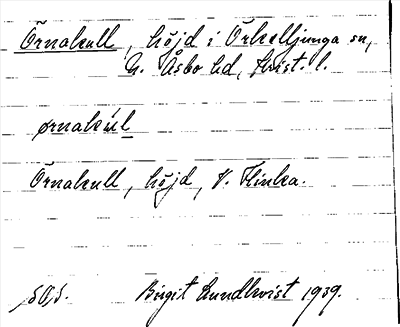 Örnakull, höjd i Örkelljunga sn,
N. Åsbo hd, Krist. l.
ørnakúl
Örnakull, höjd, V. Flinka.
Birgit Lundkvist 1939.